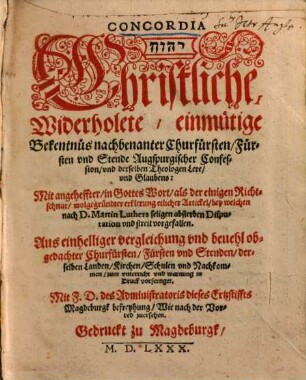 CONCORDIA
יהוה
Christliche,
Widerholete/ einmütige
Bekentnüs nachbenanter Churfürsten/Für-
sten vnd Stende Augspurgischer Confes-
sion/vnd derselben Theologen Lere/
vnd Glaubens:
Mit angeheffter/in Gottes Wort/als der einigen Richt-
schnur/wolgegründter erklerung etlicher Artickel/bey welchen
nach D. Martin Luthers seligen absterben Dispu-
tation vnd streit vorgefallen.
Aus einhelliger vergleichung vnd beuehl ob-
gedachter Churfürsten/Fürsten vnd Stenden/der-
selben Landen/Kirchen/Schulen vnd Nachkom-
men/zum vnterricht vnd warnung in
Druck vorfertiget.
Mit F. D. des Administratoris dieses Ertzstiffts
Magdeburgk befreyhung/Wie nach der Vor-
red zuersehen.
Gedruckt zu Magdeburgk/
M. D. LXXX.